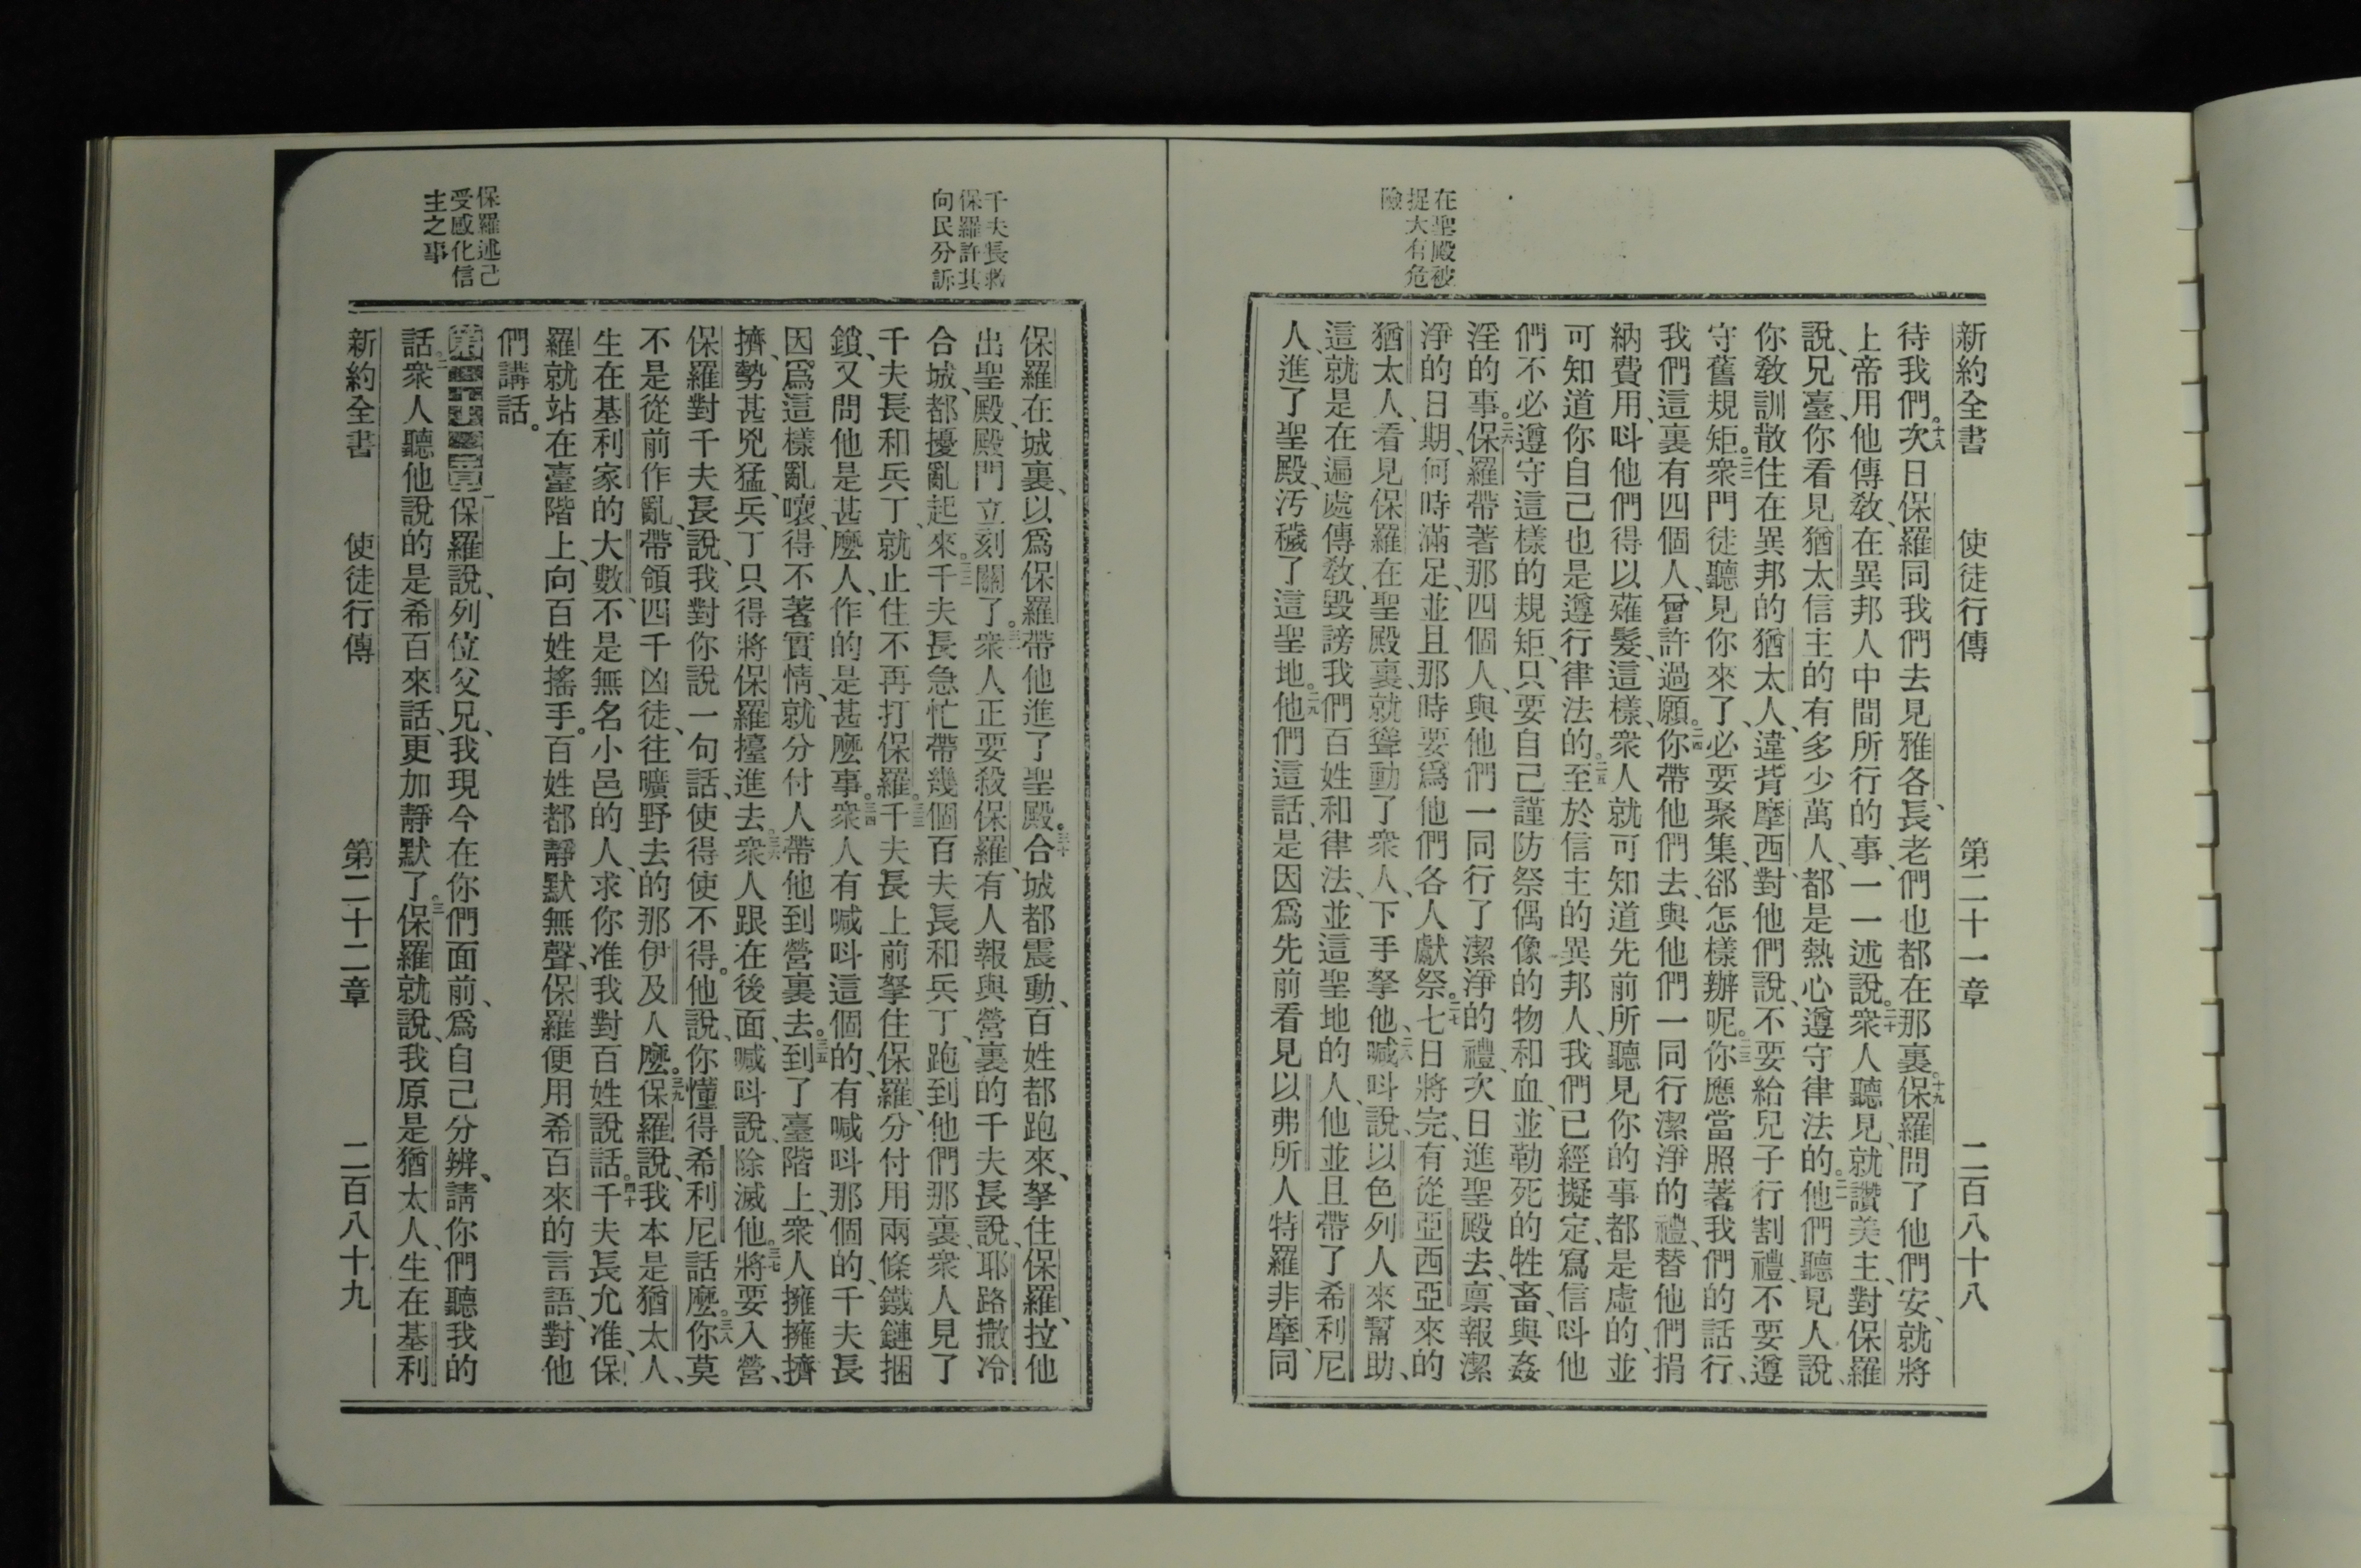 新約全書 使徒行傳 第二十一章 二百八十八
在聖殿被
捉大有危
險
待我們。十八次日保羅同我們去見雅各、長老們也都在那裏。十九保羅問了他們安、就將
上帝用他傳敎、在異邦人中間所行的事、一一述說。二十衆人聽見、就讚美主、對保羅
說、兄臺、你看見猶太信主的有多少萬人、都是熱心遵守律法的。二一他們聽見人說、
你敎訓散住在異邦的猶太人、違背摩西、對他們說、不要給兒子行割禮、不要遵
守舊規矩。二二衆門徒聽見你來了、必要聚集、郤怎樣辦呢。二三你應當照著我們的話行、
我們這裏有四個人、曾許過願。二四你帶他們去、與他們一同行潔淨的禮、替他們捐
納費用、呌他們得以薙髮、這樣、衆人就可知道先前所聽見你的事都是虛的、並
可知道你自己也是遵行律法的。二五至於信主的異邦人、我們已經擬定、寫信呌他
們不必遵守這樣的規矩、只要自己謹防祭偶像的物和血、並勒死的牲畜、與姦
淫的事。二六保羅帶著那四個人、與他們一同行了潔淨的禮、次日進聖殿去、禀報潔
淨的日期、何時滿足、並且那時要爲他們各人獻祭。二七七日將完、有從亞西亞來的
猶太人、看見保羅在聖殿裏、就聳動了衆人、下手拏他、二八喊呌說、以色列人來幫助、
這就是在遍處傳敎、毀謗我們百姓和律法、並這聖地的人、他並且帶了希利尼
人、進了聖殿、汚穢了這聖地。二九他們這話、是因爲先前看見以弗所人特羅非摩、同
千夫長救
保羅許其
向民分訴
保羅在城裏、以爲保羅帶他進了聖殿。三十合城都震動、百姓都跑來、拏住保羅、拉他
出聖殿、殿門立刻關了。三一衆人正要殺保羅、有人報與營裏的千夫長說、耶路撒冷
合城、都擾亂起來。三二千夫長急忙帶幾個百夫長和兵丁、跑到他們那裏、衆人見了
千夫長和兵丁、就止住不再打保羅。三三千夫長上前拏住保羅、分付用兩條鐵鏈捆
鎖、又問他是甚麼人、作的是甚麼事。三四衆人有喊呌這個的、有喊呌那個的、千夫長
因爲這樣亂嚷、得不著實情、就分付人帶他到營裏去。三五到了臺階上、衆人擁擁擠
擠、勢甚兇猛、兵丁只得將保羅擡進去。三六衆人跟在後面、喊呌說、除滅他。三七將要入營、
保羅對千夫長說、我對你說一句話、使得使不得。他說、你懂得希利尼話麼。三八你莫
不是從前作亂、帶領四千凶徒、往曠野去的那伊及人麼。三九保羅說、我本是猶太人、
生在基利家的大數、不是無名小邑的人、求你准我對百姓說話。四十千夫長允准、保
羅就站在臺階上、向百姓搖手。百姓都靜默無聲、保羅便用希百來的言語、對他
們講話。
保羅述己
受感化信
主之事
第二十二章一保羅說、列位父兄、我現今在你們面前、爲自己分辨、請你們聽我的
話。二衆人聽他說的是希百來話、更加靜默了。三保羅就說、我原是猶太人、生在基利
新約全書 使徒行傳 第二十二章 二百八十九